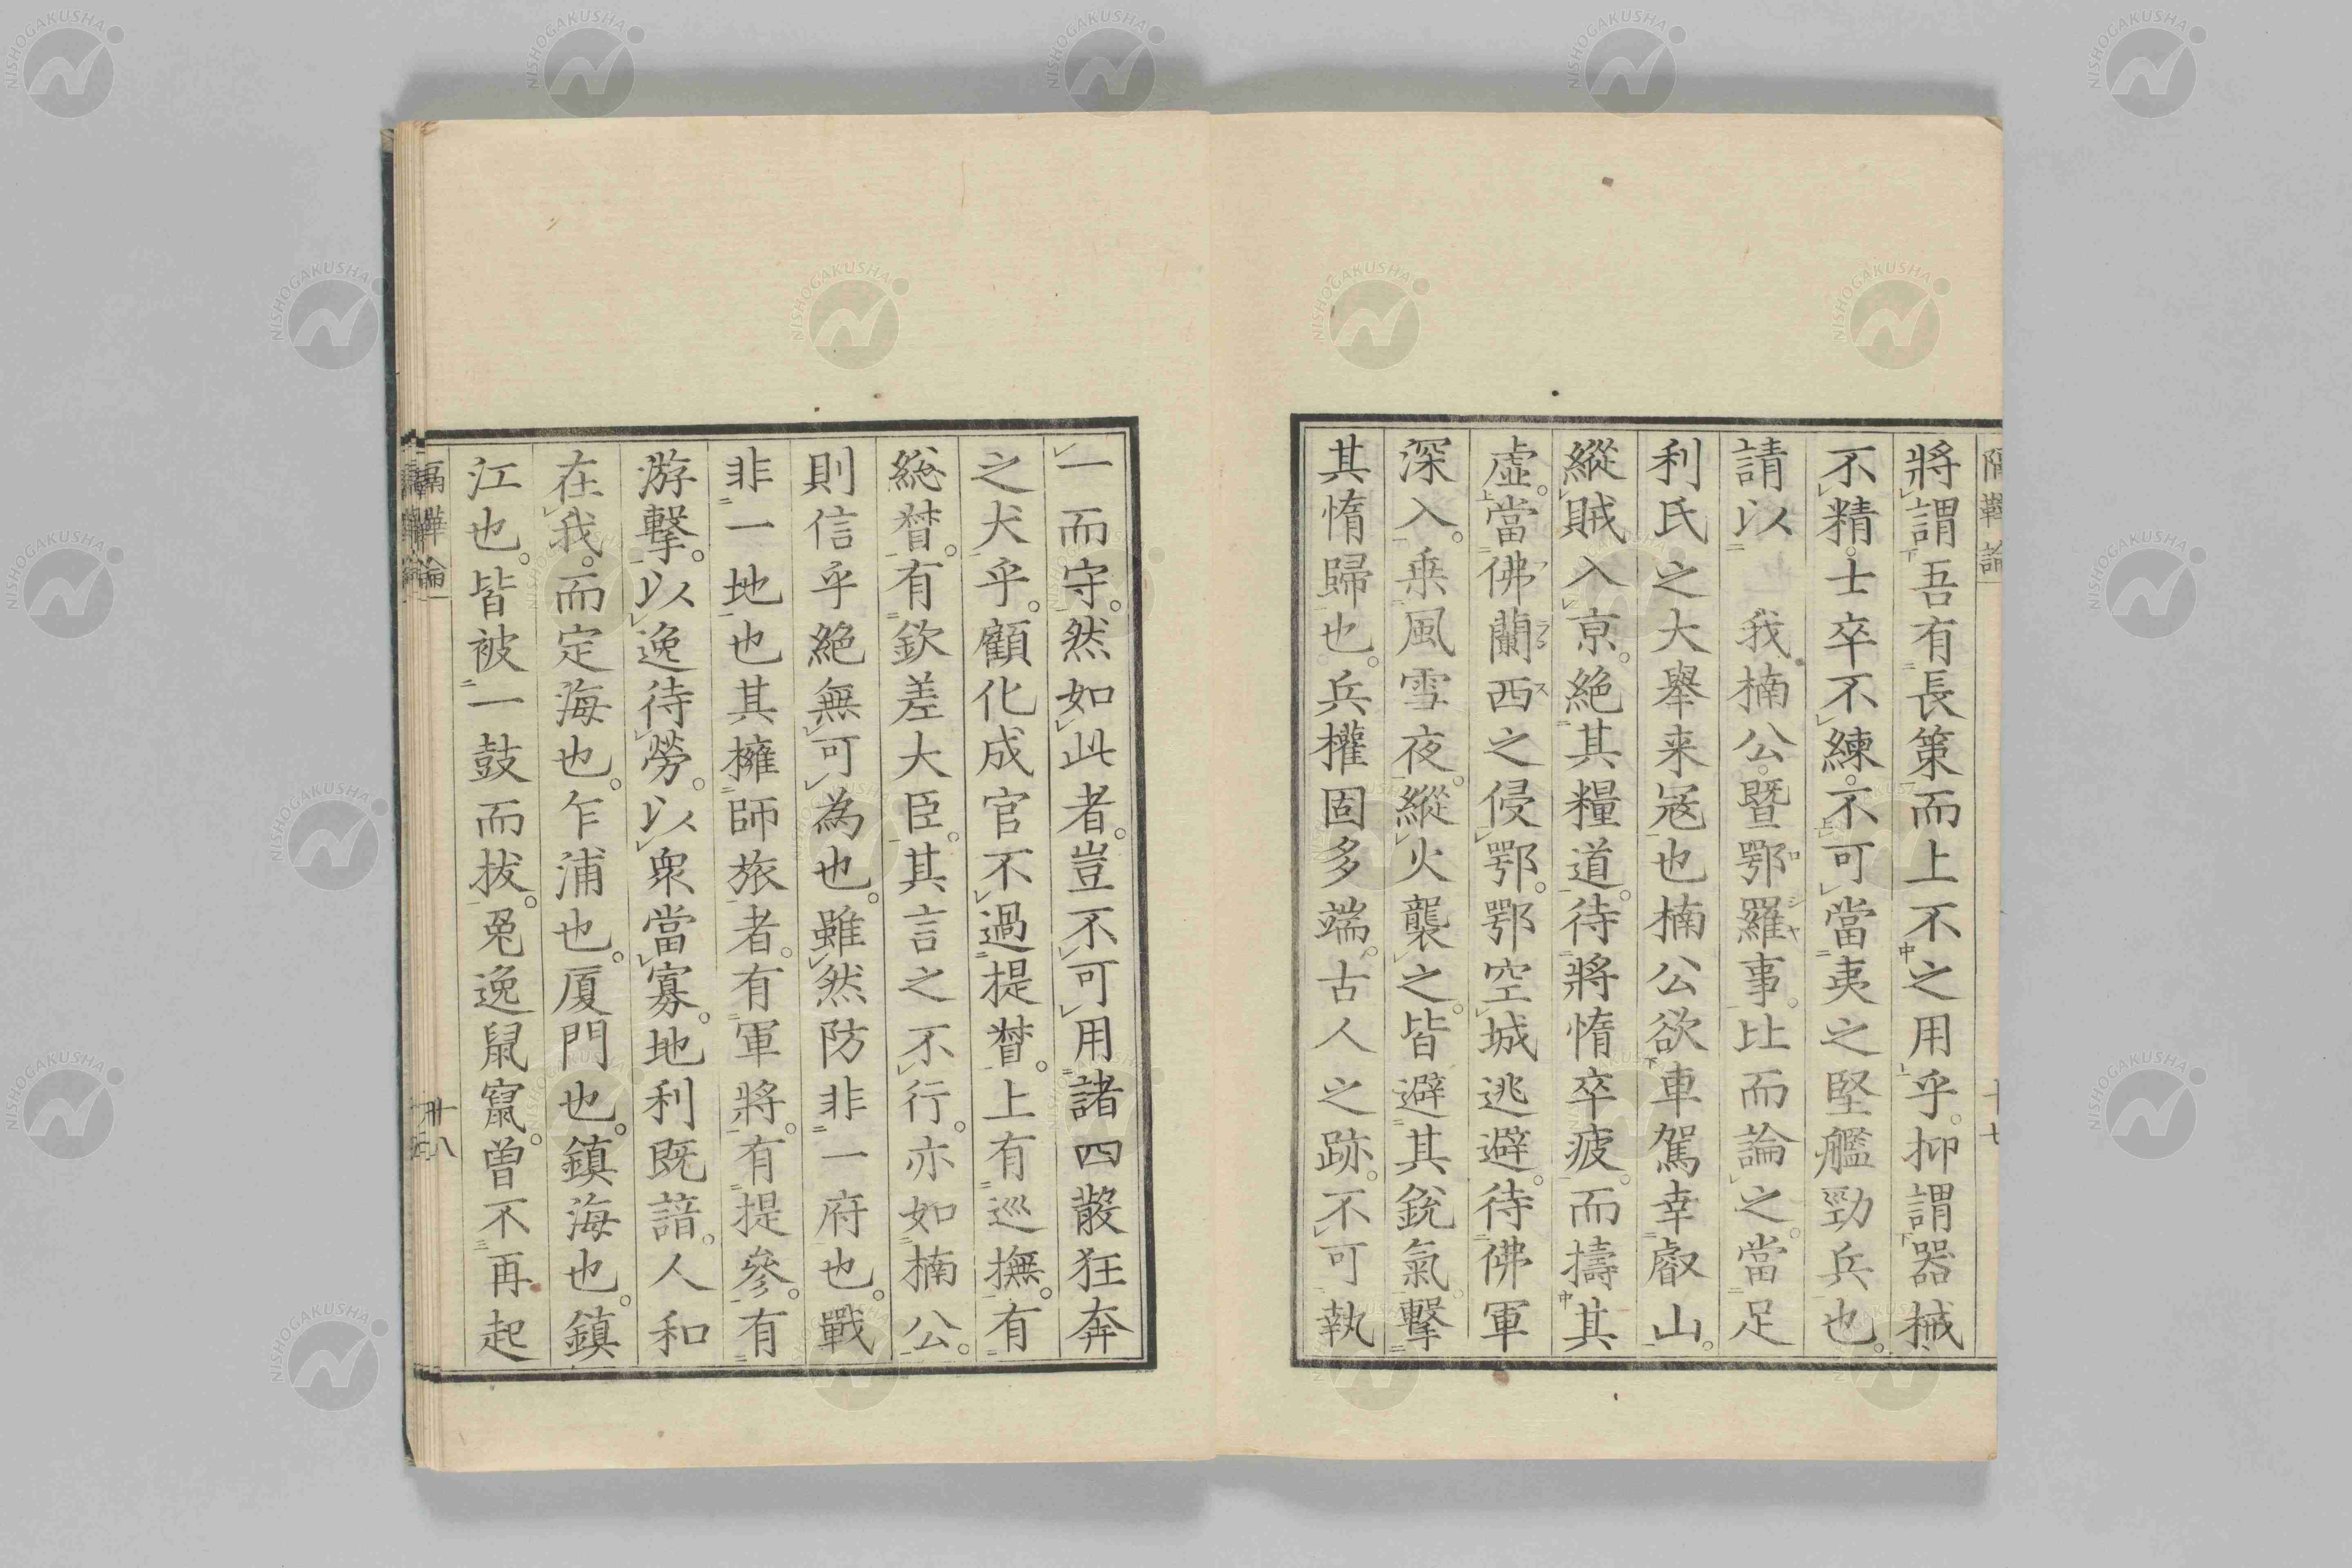 將謂吾有長策而上不之用乎。抑謂器械
不精。士卒不練。不可當夷之堅艦勁兵也。
請以 我楠公。暨鄂羅事。比而論之。當足
利氏之大舉来寇也楠公欲車駕幸叡山。
縱賊入京。絶其糧道。待將惰卒疲。而擣其
虛。當佛蘭西之侵鄂。鄂空城逃避。待佛軍
深入。乗風雪夜。縱火襲之。皆避其銳氣。擊
其惰歸也。兵權固多端。古人之跡。不可執
一而守。然如此者。豈不可用諸四散狂奔
之犬乎。顧化成官不過提督。上有巡撫。有
總督。有欽差大臣。其言之不行。亦如楠公。
則信乎絶無可為也。雖然防非一府也。戰
非一地也其擁師旅者。有軍將。有提參。有
游擊。以逸待勞。以衆當寡。地利既諳。人和
在我。而定海也。乍浦也。厦門也。鎮海也。鎮
江也。皆被一鼓而拔。兔逸鼠竄。曾不再起